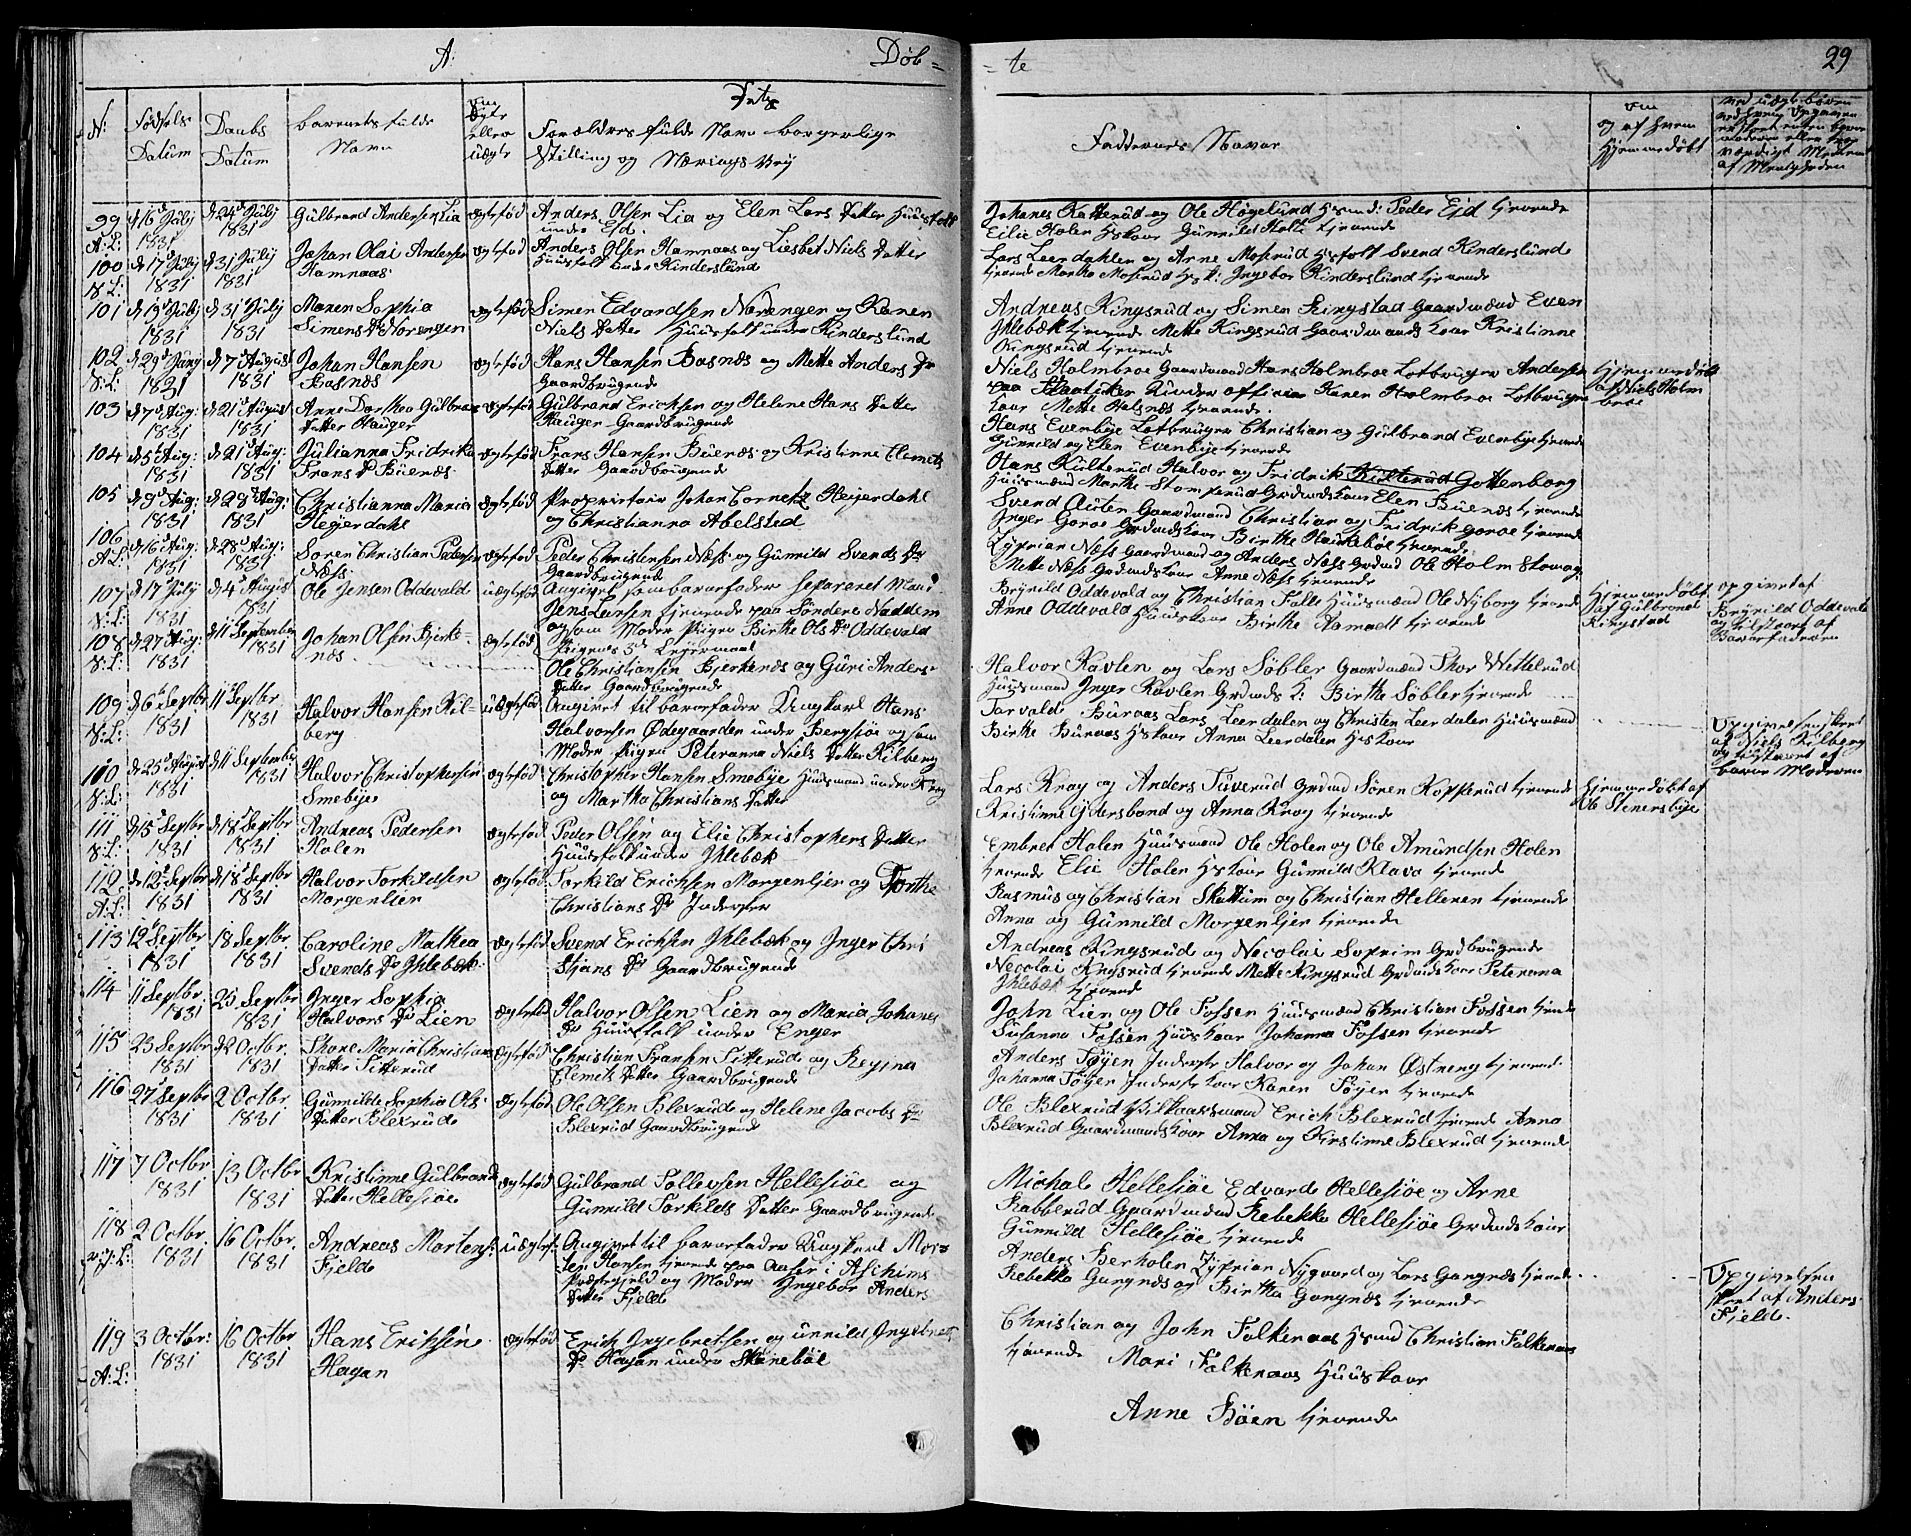 A:
Døb=
=te
29
N:
Fødsels Datum
Daabs Datum
barnets fulde Navn
om ægte eller uægte
Forældres fulde Navn borgerlige
Stilling og Nærings Vej
Faddernes Navne
om og af hvem hjemmedøbt
99
d 16 July 1831
d 24 July 1831
Gülbrand Andersen Lia
ægtefød
Anders Olsen Lia og Elen Lars Datter Huusfolk
under Eid.
Johanes Katterud og Ole Høgelund Peder Eid tjenende
Eilie Holen Gunnild Holt tjenende
A:L:
100
d 17 July 1831
d 31 July 1831
Johan Olai Andersen
Hamnaas
ægtefød
Anders Olsen Hamnaas og Liesbet Niels Datter
Huusfolk under Kinderslund
Lars Leerdahlen og Arne Moserud Svend Kinderslund
tjenende Marthe Moserud Ingebor Kinderslund tjenende
N:L:
101
d 19 July 1831
d 31 July 1831
Maren Sophia
Simens Dr Norengen
ægtefød
Simen Edvardsen Norengen og Karen
Niels Datter Huusfolk under Kinderslund
Andreas Kingsrud og Simen Ringstad Gaardmænd Even
Ihlebæk tjenende Mette Kingsrud Gaardmands kone Kristinne
Kingsrud tjenende
102
N:L:
1831
d 7 August 1831
Johan Hansen
Basnæs
ægtefød
Hans Hansen Basnæs og Mette Anders Dr
Gaardbrugende
Niels Holmbroe Gaardmand Hans Holmbroe Andersen
Karen Holmbroe
kone Mette Halsnæs tjenende
hjemmedøbt
af Niels Holm
broe
103
d 7 Aug: 1831
d 21 August 1831
Anne Dorthea Gülbrans
Datter Hauger
ægtefød
Gülbrand Ericksen og Helene Hans Datter
Hauger Gaardbrugende
Hans Evenbye Christian og Gülbrand Evenbye tjenende
Gunnild og Elen Evenbye tjenende
104
d 5 Aug: 1831
d 21 Aug: 1831
Julianna Fridrika
Frans Dr Büenæs
ægtefød
Frans Hansen Büenæs og Kristinne Clemets
Datter Gaardbrugende
Hans Külterüd Halvor og Fridrik Gottenborg
Huusmænd Marthe Elen Büenæs tjenende
105
d 9 Aug: 1831
d 28 Aug: 1831
Christianna Maria
Hegerdahl
ægtefød
Proprietair Johan Heijerdahl
og Christianna Abelsted
Svend Gaardmand Christian og Fridrik tjenende
Inger Birthe tjenende
106
A:L:
d 16 Aug: 1831
d 28 Aug: 1831
Søren Christian Pedersen
Næss
ægtefød
Peder Christensen Næss og Gunnild Svends Dr
Gaardbrugende
Zyprian Næss Gaardmand og Anders Næss Ole Holm
Mette Næss Anne Næss tjenende
107
N:L:
d 17 July 1831
d 4 August 1831
Ole Jensen Oddevald
uægtefød
Angivet som barnefader separeret Mand
Jens Larsen tjenende paa Søndere
og som Moder Pigen Birthe Ols Dr Oddevald
Pigenes Leiermaal
Brynild Oddevald og Christian Falle Huusmænd Ole Nyborg tjenende
Anne Oddevald Huuskone Birthe tjenende
hjemmedøbt
af Gülbrand
Ringstad
opgivet af
Brynild Oddevald
og tilstaaet af
Barnefaderen
108
N:L:
d 27 Aug: 1831
d 11 September 1831
Johan Olsen Bjerke-
næs
ægtefød
Ole Christiansen Bjerkenæs og Guri Anders-
Datter Gaardbrugende
Halvor Kavlen og Lars Søbler Gaardmænd Thor Wettelrud
Huusmand Inger Kavlen Birthe Søbler tjenende
109
N:L:
d 6 Septbr 1831
11 Septbr 1831
Halvor Hansen Kil-
berg
uægtefød
Angivet til barnefader Ungkarl Hans
Halvorsen Ødegaarden under Bergsjøe og som
Moder Pigen Peteranna Niels Datter Kilberg
Torvald Büraas Lars Leerdalen og Christen Leerdalen Huusmænd
Birthe Büraas Anna Leerdalen
Opgivelsen skeet
af Niels Kilberg
og tilstaaet af
barne Moderen
110
N:L:
d 25 August 1831
d 11 September 1831
Halvor Christophersen
Smebye
ægtefød
Christopher Hansen Smebye Huusmand under Krog
og Martha Christians Datter
Lars Krog og Anders Tuverud Søren Kopperud tjenende
Kristinne Ydersbond og Anna Krog tjenende
hjemmedøbt af
Ole Stenersbye
111
N:L:
d 15 Septbr 1831
d 18 Septbr 1831
Andreas Pedersen
Holen
ægtefød
Peder Olsen og Elie Christophers Datter
Huusfolk under Ihlebæk
Embret Holen Huusmand Ole Holen og Ole Amundsen Holen
tjenende Elie Holen Gunnild Klava tjenende
112
A:L:
d 12 Septbr 1831
d 18 Septbr 1831
Halvor Torkildsen
Morgenlien
ægtefød
Torkild Erichsen Morgenlien og Dorthe
Christians Dr Inderster
Rasmus og Christian Skøttum og Christian Helleren tjenende
Anna og Gunnild Morgenlien tjenende
113
12 Septbr 1831
18 Septbr. 1831
Caroline Mathea
Svends Dr Ihlebæk
ægtefød
Svend Erichsen Ihlebæk og Inger Chri
stians Dr Gaardbrugende
Andreas Kingsrud og Necolai Soprim Grdbrugende
Necolai Kingsrud tjenende Mette Kingsrud Peternna
Ihlebæk tjenende
114
11 Septbr. 1831
25 Septbr 1831
Inger Sophia
Halvors Dr Lien
ægtefød
Halvor Olsen Lien og Maria Johanes
Dr Huusfolk under Enger
John Lien og Ole Fossen Huusmænd Christian Fossen tjende
Susanna Fossen Huuskone Johanna Fossen tjenende
115
23 Septbr 1831
d 2 Octbr. 1831
Thore Maria Christians
Datter Titterud
ægtefød
Christian Fransen Titterud og Regina
Clemets Datter Gaardbrugende
Anders Tøyen Inderster Halvor og Johan Østreng tjenende
Johanna Tøyen Karen Tøyen tjenende
116
27 Septbr 1831
2 Octbr 1831
Gunnilde Sophia Ols-
Datter Blexrud
ægtefød
Ole Olsen Blexrud og Helene Jacobs Dr
Blexrud Gaardbrugende
Ole Blexrud Erich Blexrud tjenende Anna
Blexrud Gaardmandskone Anna og Kirstinne Blexrud tjenende
117
7 Octbr 1831
13 Octbr 1831
Kristinne Gülbrands
Datter Hellesjøe
ægtefød
Gülbrand Tollevsen Hellesjøe og
Gunnild Torkilds Datter Gaardbrugende
Michal Hellesjøe Edvard Hellesjøe og Arne
Rabberud Gaardmænd Rebekka Hellesjøe Grdmdskone
Gunnild Hellesjøe tjenende
118
2 Octbr. 1831
16 Octbr. 1831
Andreas Mortens:
Fjeld
uægtef
Angivet til barnefader Ungkarl Mor-
ten Hansen tjenende paa Aaser i Aschims
Præstegjeld og Moder Ingebor Anders
Datter Fjeld
Anders Berholen Zyprian Nygaard og Lars Gangnæs tjenende
Rebekka Gangnæs og Birthe Gangnæs tjenende
Opgivelsen
skeet af Anders
Fjeld.
119
A:L:
3 Octbr: 1831
16 Octbr 1831
Hans Erichsen
Hagan
ægtefød
Erich Ingebretsen og Gunnild Ingebrets
Dr Hagan under Skinebøl
Christian og John Falkenaas Christian Falkenaas
tjenende Mari Falkenaas Huuskone
Anne Bøen tjenende